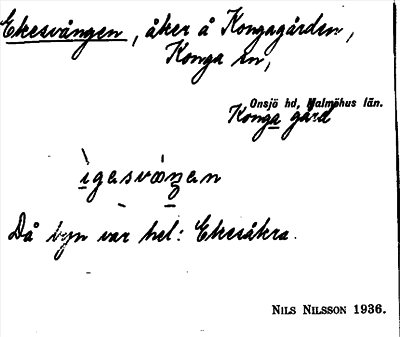 Ekesvången, åker å Kongagården,
Konga sn,
Onsjö hd, Malmöhus län.
Konga gård
ìgasvàŋan
Då byn var hel: Ekesåkra.
NILS NILSSON 1936.